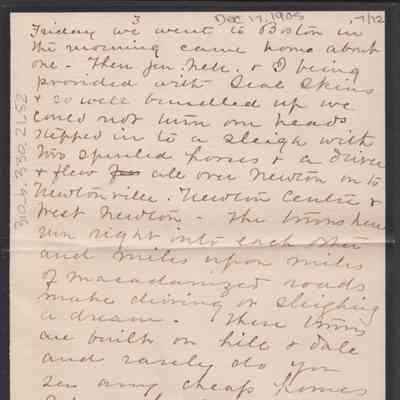 3
Dec 17, 1905
-7/12
Friday we went to Boston in
the morning came home about
one - Then Jen. Nell. & I being
provided with Seal Skins
& so well bundled up we
could not turn our heads
stepped in to a sleigh with
two spirited horses & a driver
& flew all over Newton on to
Newtonville. Newton Centre &
West Newton - The towns here
run right into each other
and miles upon miles
of macadamized roads
make driving or sleighing
a dream. These towns
are built on hill & dale
and rarely do you
see any cheap homes